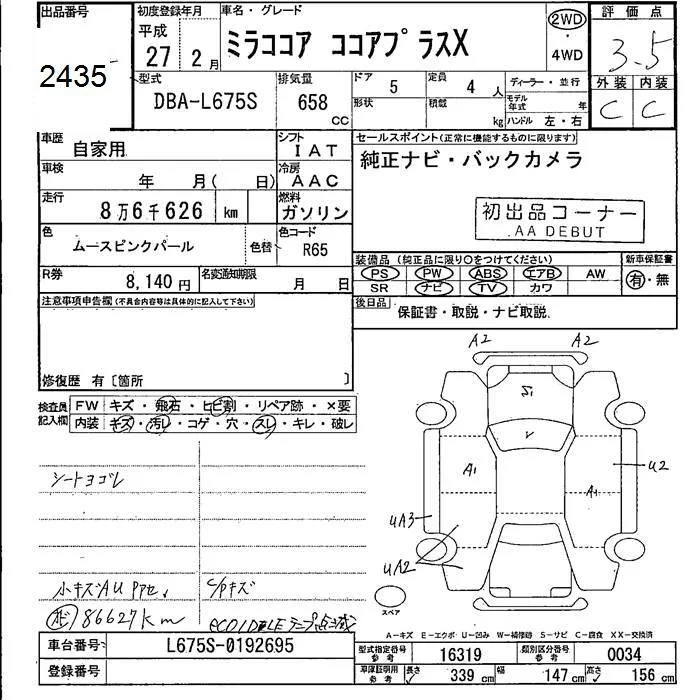 出品番号
2435
初度登録年月
平成
27年 2月
車名・グレード
ミラココア ココアプラスX
2WD
・
4WD
評価点
3.5
外装 内装
C C
型式
DBA-L675S
排気量
658
cc
ドア
5
定員
4 人
形状
積載
kg
ディーラー・並行
モデル年式 年
ハンドル 左・右
車歴
自家用
シフト
IAT
車検
年 月( 日)
冷房
AAC
走行
8万6千626 km
燃料
ガソリン
色
ムースピンクパール
色替
色コード
R65
R券
8,140円
名変通知期限
月 日
セールスポイント(正常に機能するものに限ります)
純正ナビ・バックカメラ
初出品コーナー
AA DEBUT
装備品(純正品に限り○をつけてください)
PS PW ABS エアB AW
SR ナビ TV カワ
新車保証書
有・無
後日品
保証書・取説・ナビ取説
注意事項申告欄(不具合内容等は具体的に記入して下さい)
修復歴 有〔箇所 〕
検査員記入欄
FW キズ・飛石・ヒビ割・リペア跡・×要
内装 キズ・汚レ・コゲ・穴・スレ・キレ・破レ
シートヨゴレ
小キズAU
C/Pキズ
86627km
A2 A2
A1
U2
A1
UA3
UA2
スペア
A-キズ E-エクボ U-凹み W-補修跡 S-サビ C-腐食 XX-交換済
車台番号
L675S-0192695
登録番号
型式指定番号
参考
16319
類別区分番号
参考
0034
車庫証明用
参考
長さ
339 cm
幅
147 cm
高さ
156 cm